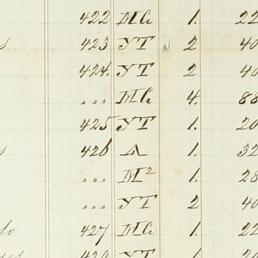 422 MC 1. 22
423 YT 2 40
424. YT 2 40
... MC 4. 88
425 YT 1. 20
426 A 1. 32
... M² 1. 28
... YT 2 40
427 MC 1. 22
YT 1.